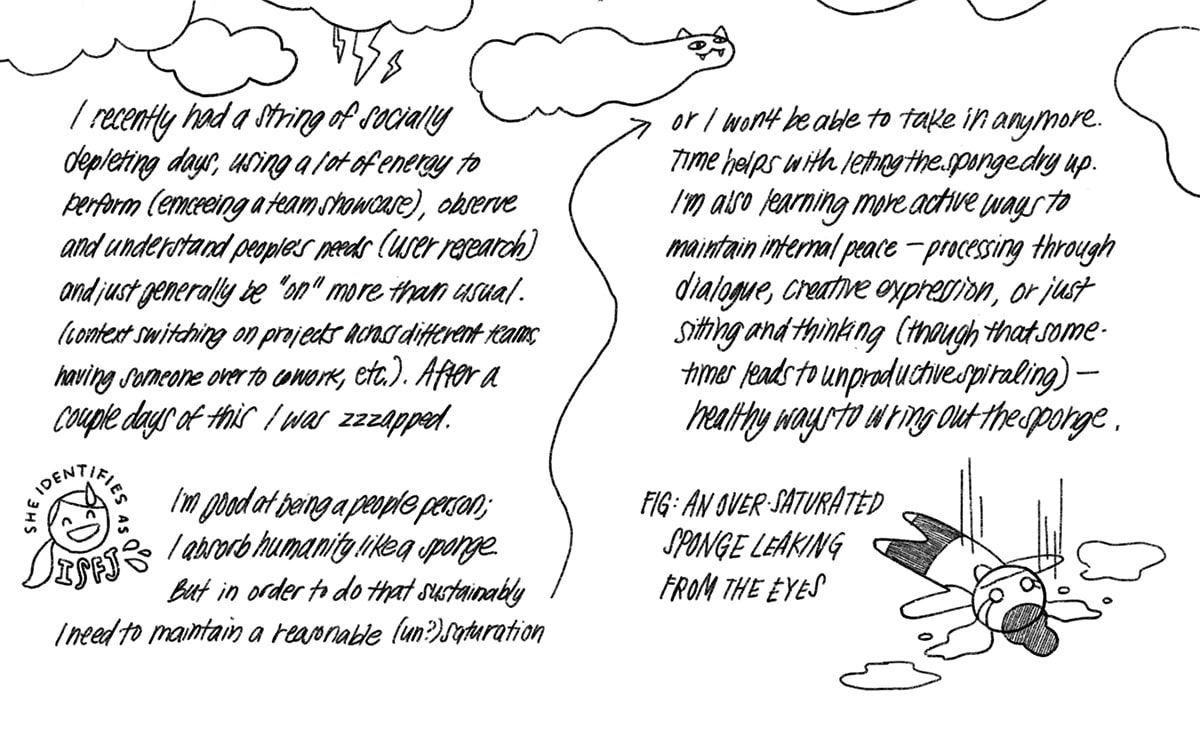 I recently had a string of socially
depleting days, using a lot of energy to
perform (emceeing a team showcase), observe
and understand people's needs (user research)
and just generally be "on" more than usual.
(context switching on projects across different teams,
having someone over to cowork, etc.). After a
couple days of this I was zzzapped.
SHE IDENTIFIES AS
ISFJ
I'm good at being a people person;
I absorb humanity like a sponge.
But in order to do that sustainably
I need to maintain a reasonable (un?)saturation
or I won't be able to take in anymore.
Time helps with letting the sponge dry up.
I'm also learning more active ways to
maintain internal peace — processing through
dialogue, creative expression, or just
sitting and thinking (though that some-
times leads to unproductive spiraling) —
healthy ways to wring out the sponge.
FIG: AN OVER-SATURATED
SPONGE LEAKING
FROM THE EYES